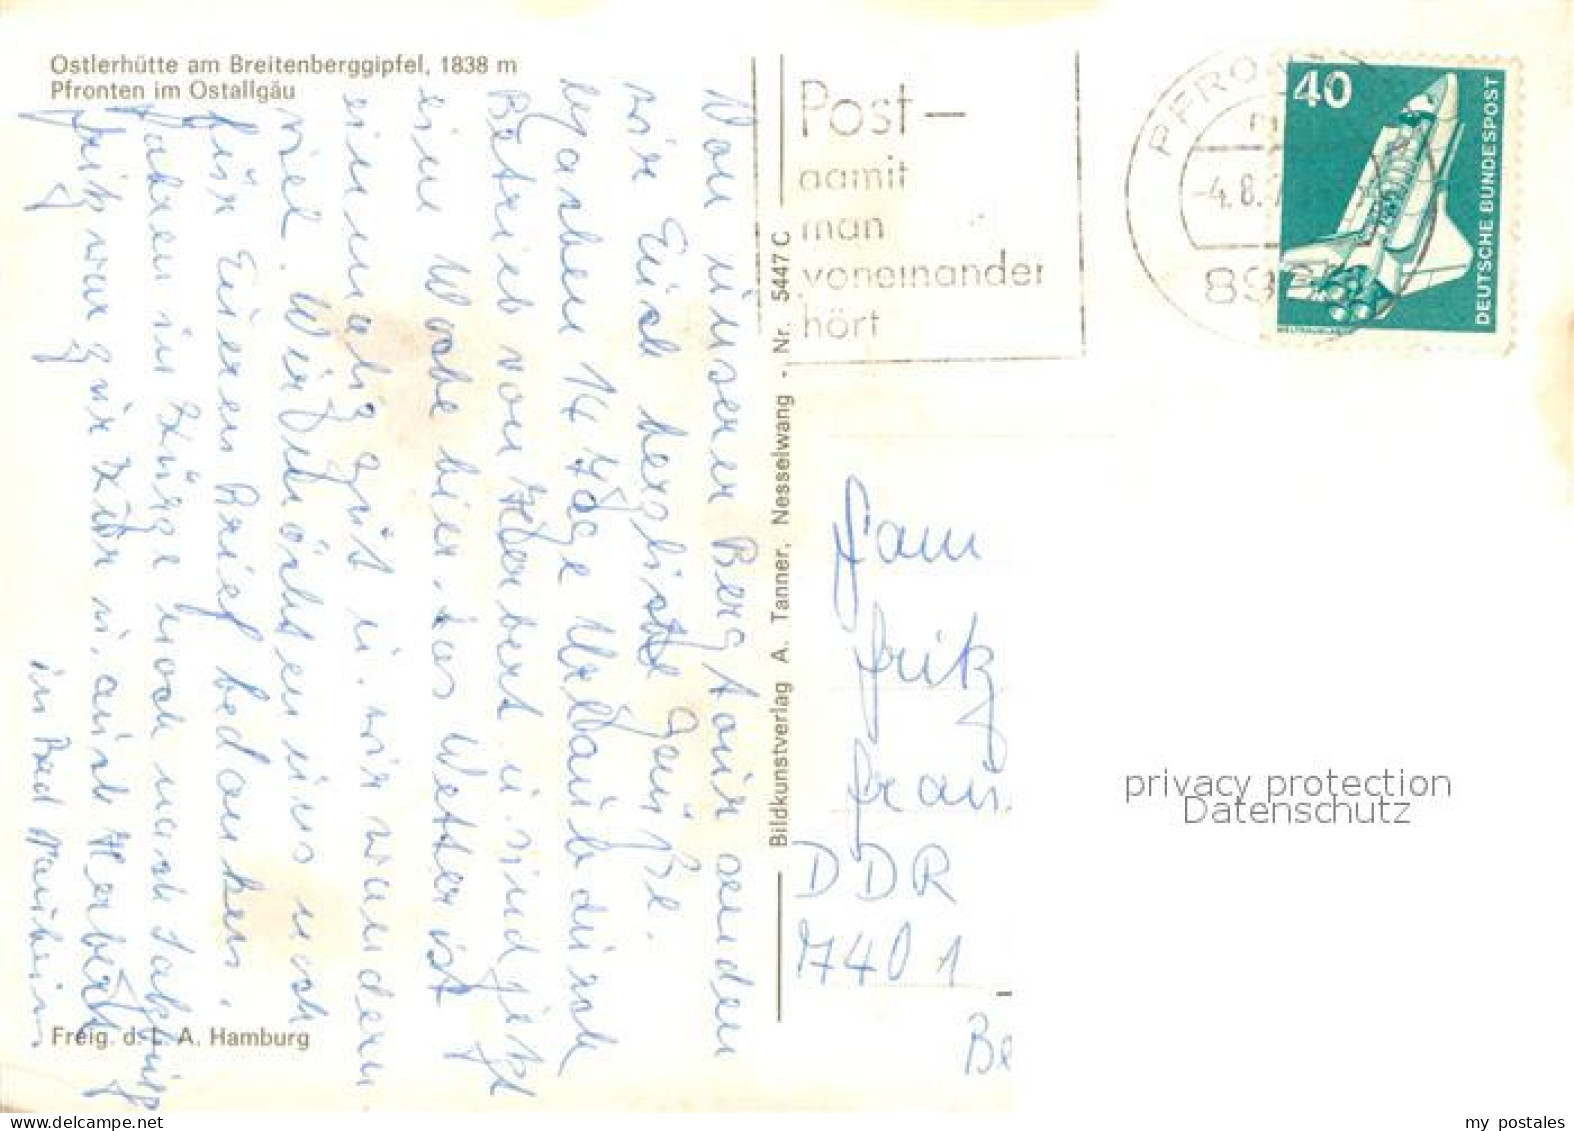 Ostlerhütte am Breitenberggipfel, 1838 m
Pfronten im Ostallgäu
Von unserer Bergtour senden
wir Euch herzliche Grüße.
Machen 14 Tage Urlaub durch
Betrieb von Herbert u. sind jetzt
eine Woche hier. Das Wetter ist
einmalig gut u. wir wandern
viel. Wir möchten uns noch
für Eueren Brief bedanken.
Fahren in Kürze noch nach Salzburg
Fritz war zur Kur u. auch Herbert
in Bad Nauheim
Freig. d. L. A. Hamburg
Bildkunstverlag A. Tanner, Nesselwang - Nr. 5447 C
Post –
damit
man
voneinander
hört
PFRO
-4.8.
40
DEUTSCHE BUNDESPOST
Fam
Fritz
DDR
7401
Be
privacy protection
Datenschutz
my postales
www.delcampe.net